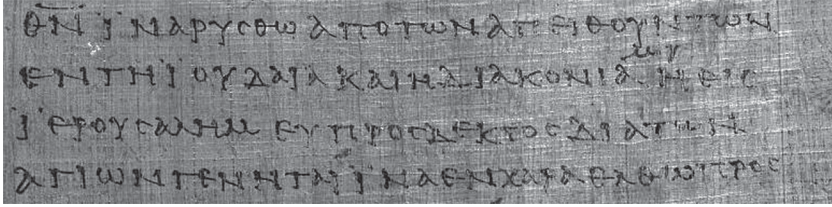 Θ̅Ν̅ ΪΝΑ ΡΥϹΘΩ ΑΠΟ ΤΩΝ ΑΠΕΙΘΟΥΝΤΩΝ
ΕΝ ΤΗ ΪΟΥΔΑΙΑ ΚΑΙ Η ΔΙΑΚΟΝΙΑ ΜΟΥ Η ΕΙϹ
ΪΕΡΟΥϹΑΛΗΜ ΕΥΠΡΟϹΔΕΚΤΟϹ ΔΙΑ ΤΩΝ
ΑΓΙΩΝ ΓΕΝΗΤΑΙ ΪΝΑ ΕΝ ΧΑΡΑ ΕΛΘΩ ΠΡΟϹ